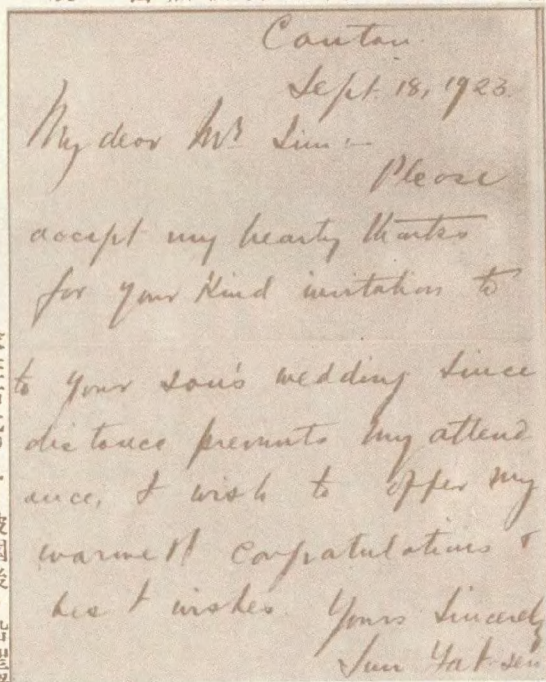 Canton.
Sept. 18, 1923.
My dear Mr. Lim :—
Please
accept my hearty thanks
for your kind invitation to
to your son's wedding Since
distance prevents my attend
ance, I wish to offer my
warmest congratulations &
best wishes. Yours Sincerely
Sun Yat-sen